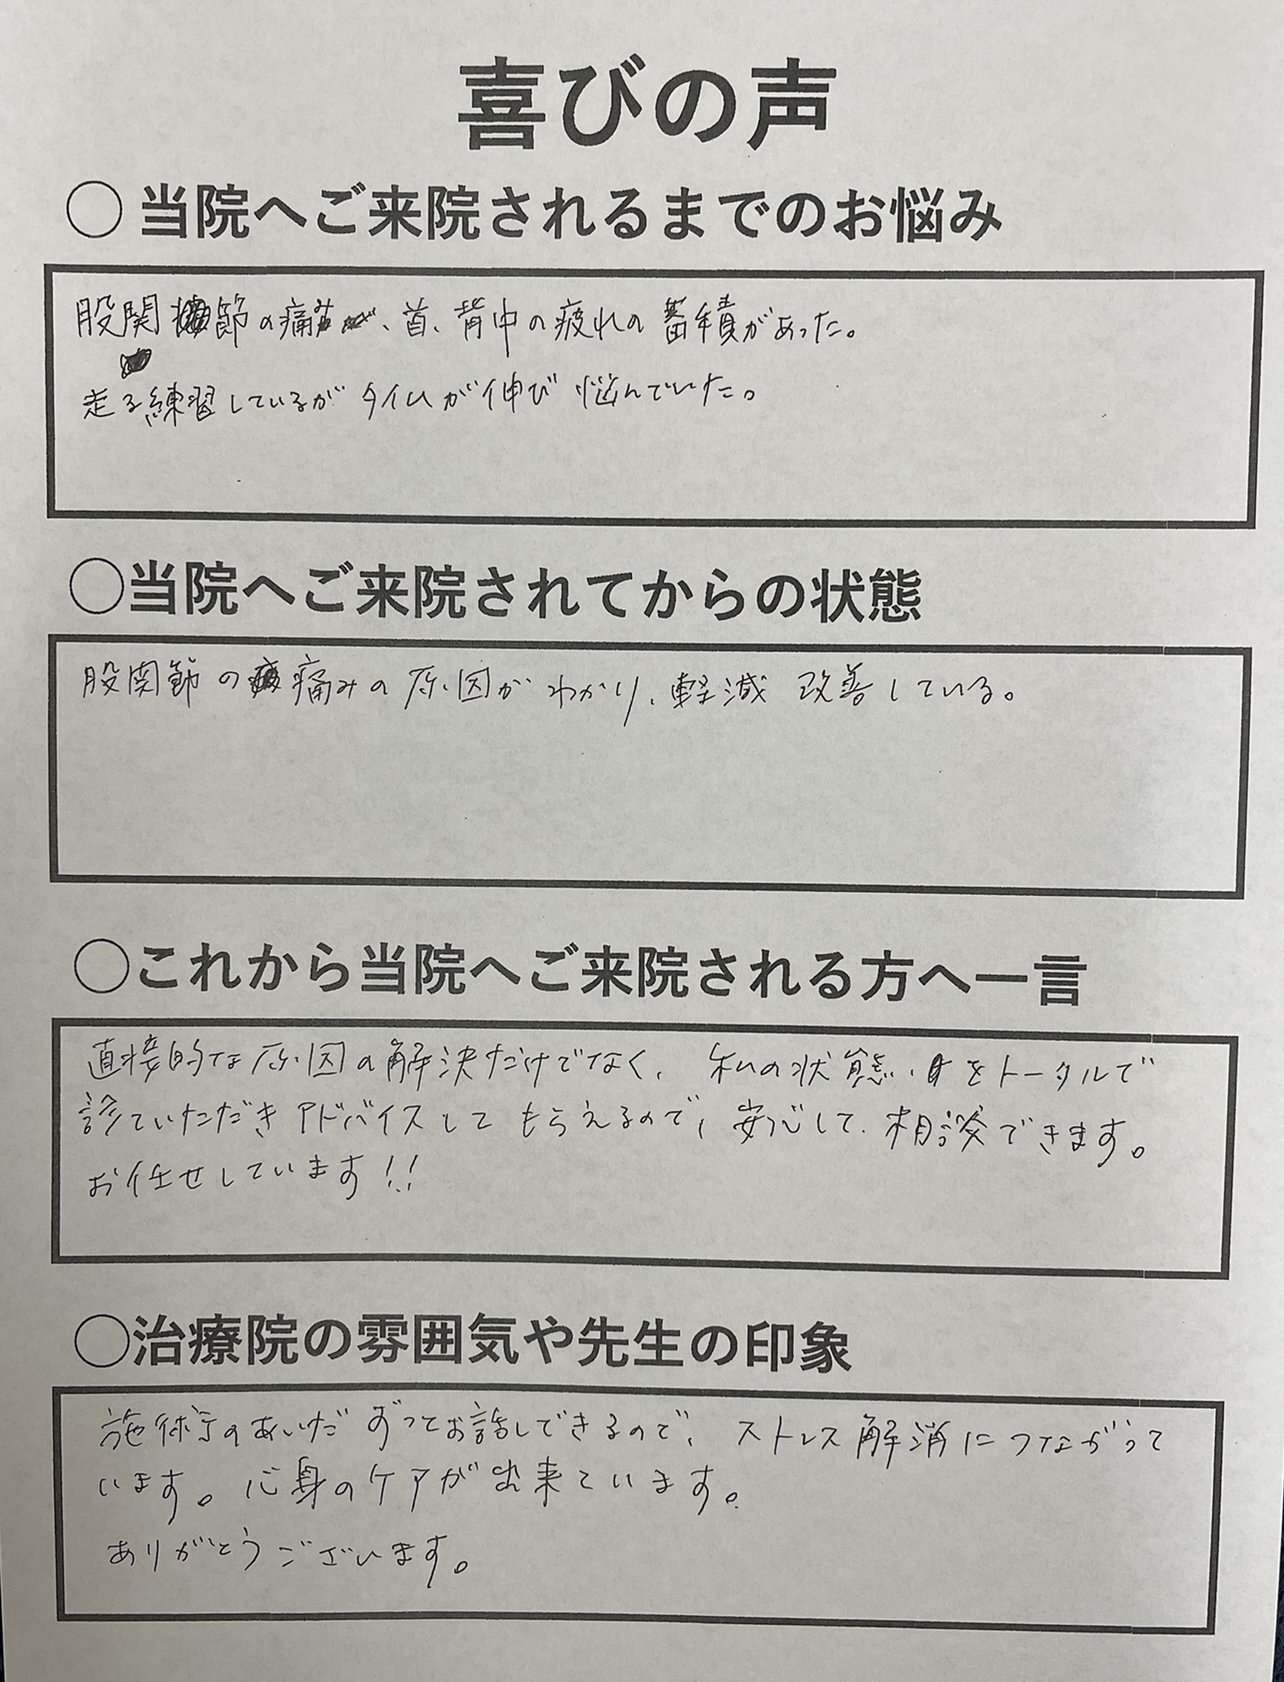 喜びの声
○ 当院へご来院されるまでのお悩み
股関節の痛み、首、背中の疲れの蓄積があった。
走る練習しているがタイムが伸び悩んでいた。
○当院へご来院されてからの状態
股関節の痛みの原因がわかり、軽減 改善している。
○これから当院へご来院される方へ一言
直接的な原因の解決だけでなく、私の状態、身をトータルで
診ていただきアドバイスしてもらえるので、安心して、相談できます。
お任せしています!!
○治療院の雰囲気や先生の印象
施術のあいだずっとお話しできるので、ストレス解消につながって
います。心身のケアが出来ています。
ありがとうございます。